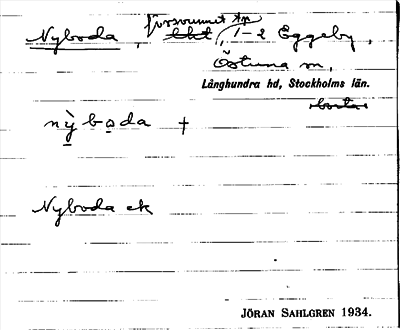 försvunnet tp
Nyboda, 1-2 Eggeby,
Östuna sn,
Långhundra hd, Stockholms län.
borta
nỳ bo̱da †
Nyboda ek
JÖRAN SAHLGREN 1934.